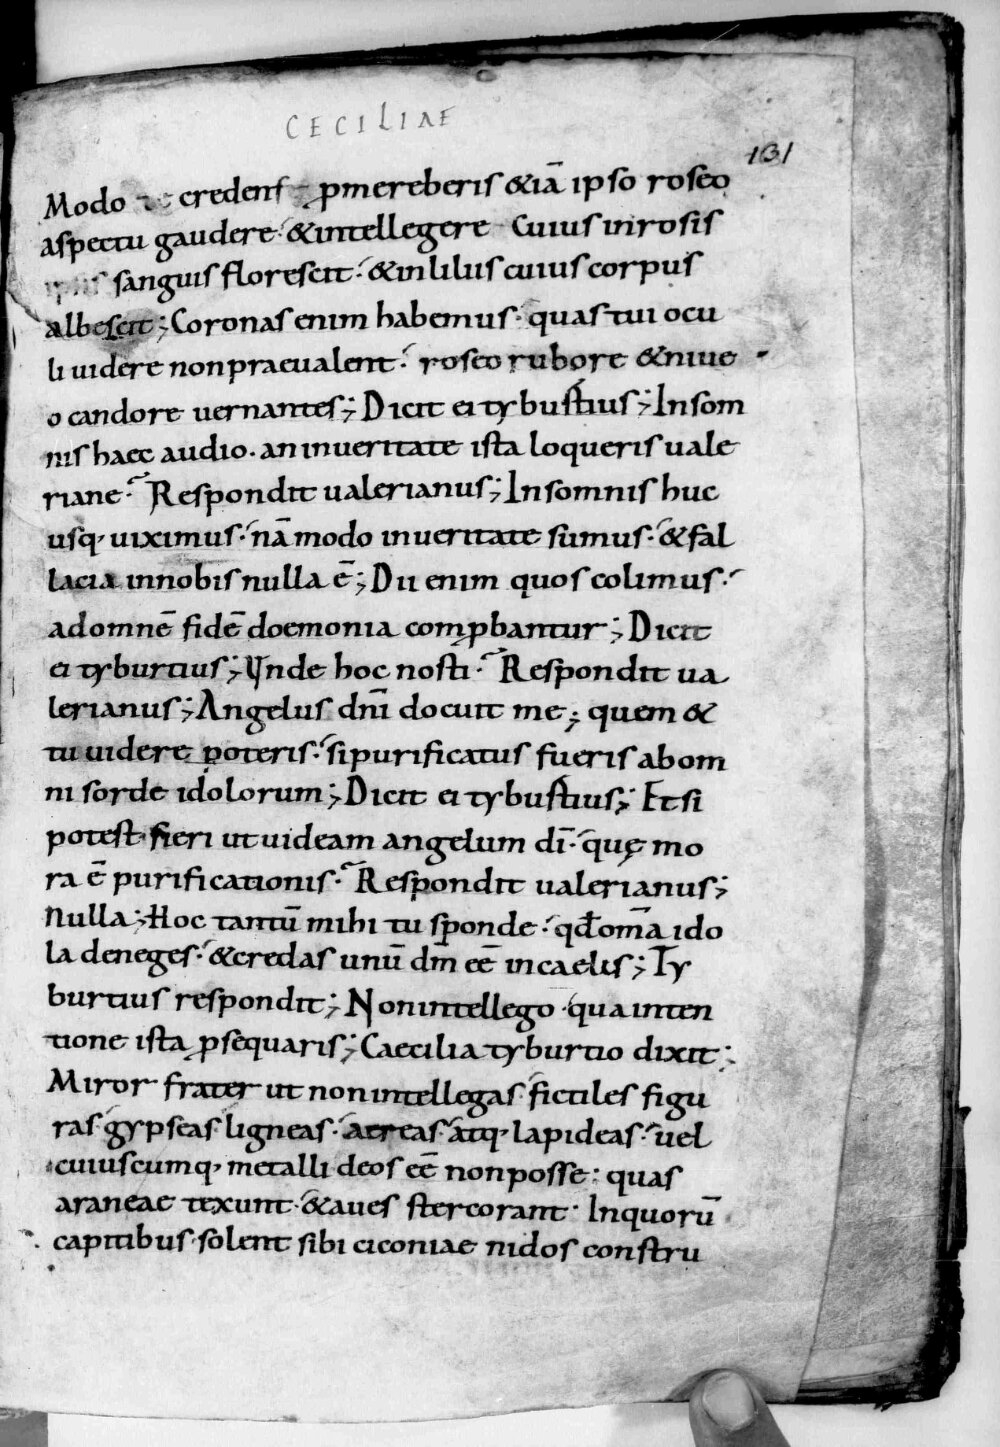 CECILIAE
131
Modo credens p̄mereberis &iā ipso roseo
aspectu gaudere · &intellegere Cuius inrosis
sanguis florescit · &inliliis cuius corpus
albescit; Coronas enim habemus · quas tui ocu
li uidere nonpraeualent · roseo rubore &niue
o candore uernantes; Dicit ei tybustius; Insom
nis haec audio · an inueritate ista loqueris uale
riane · Respondit ualerianus; Insomnis huc
usq· uiximus · nā modo inueritate sumus · &fal
lacia innobis nulla ē; Dii enim quos colimus ·
adomnē fidē doemonia comꝓbantur; Dicit
ei tyburtius; Unde hoc nosti · Respondit ua
lerianus; Angelus dn̄i docuit me; quem &
tu uidere poteris · sipurificatus fueris abom
ni sorde idolorum; Dicit ei tybustius; Et si
potest fieri ut uideam angelum dī · quę mo
ra ē purificationis · Respondit ualerianus;
Nulla; Hoc tantū mihi tu sponde · qđ om̄a ido
la deneges · &credas unū dm̄ eē incaelis; Ty
burtius respondit; Nonintellego · qua inten
tione ista ꝓsequaris; Caecilia tyburtio dixit;
Miror frater ut nonintellegas fictiles figu
ras gypseas ligneas · aereas atq· lapideas · uel
cuiuscumq· metalli deos eē nonposse: quas
araneae texunt · &aues stercorant · Inquorū
capitibus · solent sibi ciconiae nidos constru